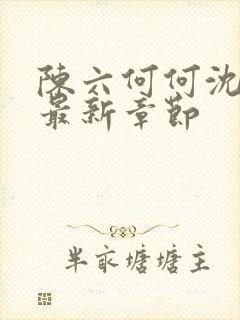 陳六何何沈
最新章節
半畝塘塘主